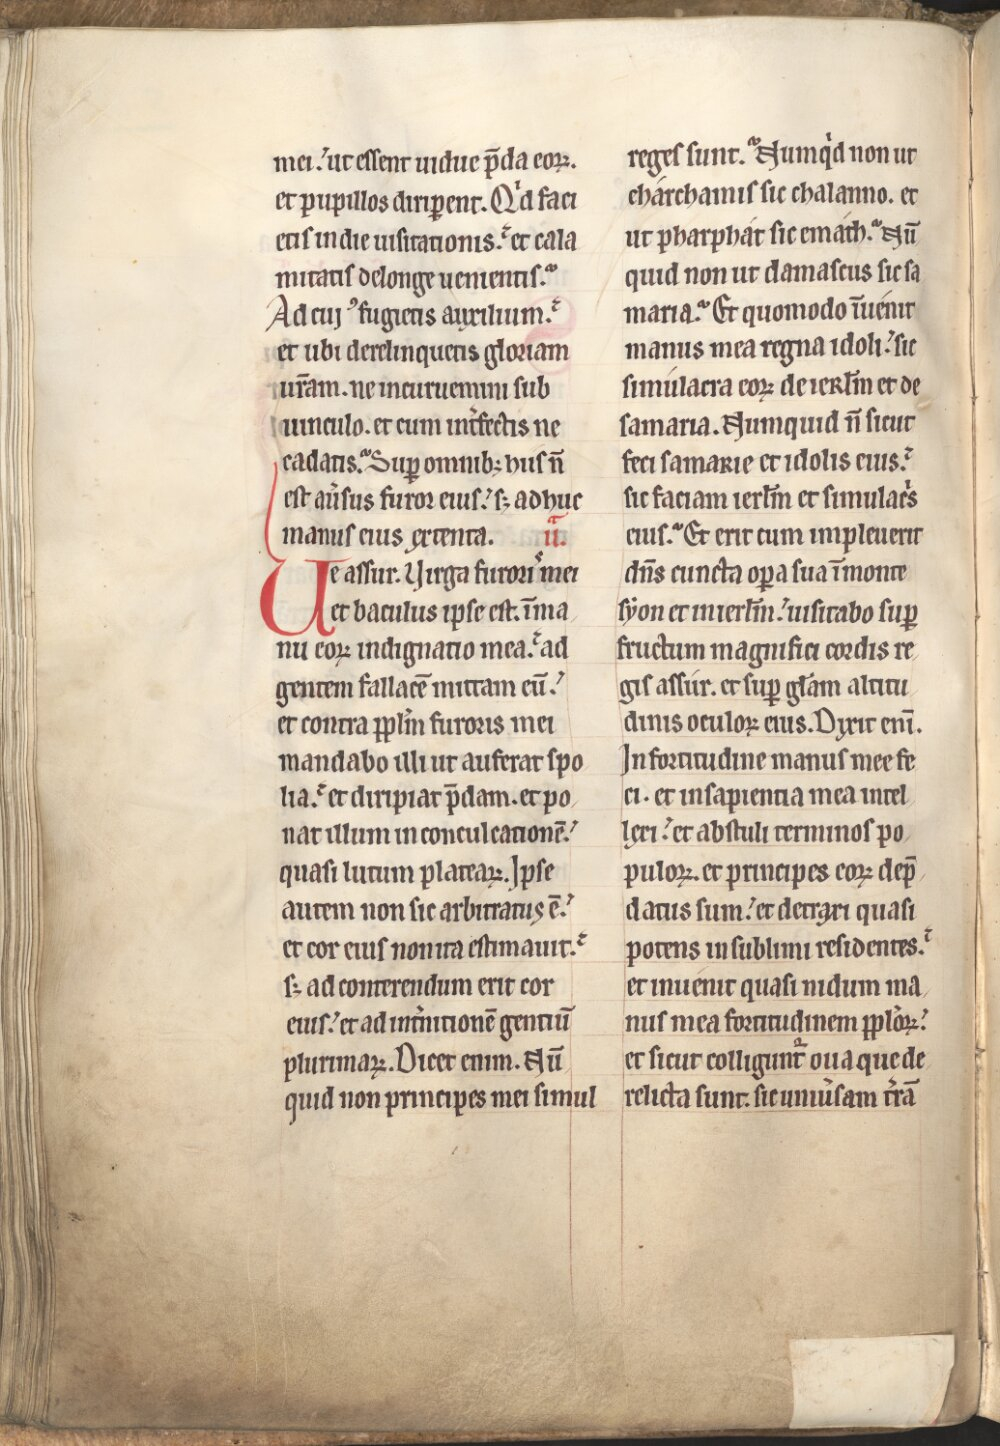 mei. ut essent uidue p̄da eoꝝ.
et pupillos diriꝑent. Qͥd faci
etis in die uisitationis. et cala
mitatis de longe uenientis.
Ad cuiꝰ fugietis auxilium.
et ubi derelinquetis gloriam
ur̄am. ne incuruemini sub
uinculo. et cum int̓fectis ne
cadatis. Suꝑ omnibꝫ hiis n̄
est au̓sus furor eius. sꝫ adhuc
manus eius extenta. ii.
Ue assur. Uirga furoris mei
et baculus ipse est. ī ma
nu eoꝝ indignatio mea. ad
gentem fallacē mittam eū.
et contra pp̄lm furoris mei
mandabo illi ut auferat spo
lia. et diripiat p̄dam. et po
nat illum in conculcationē.
quasi lutum plateaꝝ. Ipse
autem non sic arbitratus ē.
et cor eius non ita estimauit.
sꝫ ad conterendum erit cor
eius. et ad int̓nitionē gentiū
plurimaꝝ. Dicet enim. Nū
quid non principes mei simul
reges sunt. Numqͥd non ut
charchamis sic chalanno. et
ut pharphat sic emath. Nū
quid non ut damascus sic sa
maria. Et quomodo īuenit
manus mea regna idoli. sic
simulacra eoꝝ de ierl̄m et de
samaria. Numquid n̄ sicut
feci samarie et idolis eius.
sic faciam ierl̄m et simulac̓s
eius. Et erit cum impleuerit
dn̄s cuncta oꝑa sua ī monte
syon et in ierl̄m. uisitabo suꝑ
fructum magnifici cordis re
gis assur. et suꝑ gl̄am altitu
dinis oculoꝝ eius. Dixit eni̅.
In fortitudine manus mee fe
ci. et in sapientia mea intel
lexi. et abstuli terminos po
puloꝝ. et principes eoꝝ dep̄
datus sum. et detraxi quasi
potens in sublimi residentes.
et inuenit quasi nidum ma
nus mea fortitudinem pp̄loꝝ.
et sicut colligunt᷑ oua que de
relicta sunt. sic uniu̓sam t̓rā